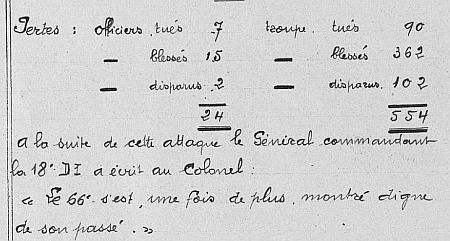 Pertes : officiers, tués 7 troupe. tués 90
— blessés 15 — blessés 362
— disparus. 2 — disparus. 102
24 554
a la suite de cette attaque le Général commandant
la 18e DI a écrit au Colonel :
« Le 66e s'est, une fois de plus, montré digne
de son passé. »